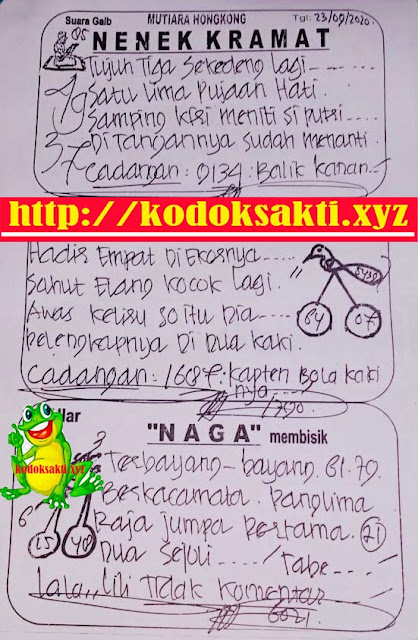 Suara Gaib
MUTIARA HONGKONG
Tgl: 23/09/2020
05
NENEK KRAMAT
Tujuh Tiga Sekedeng lagi
Satu Lima Pujaan Hati.
Samping kiri meniti si putri
Di Tangannya sudah menanti.
Cadangan: 0134: Balik kanan
http://kodoksakti.xyz
Hadis Empat Di Ekornya
Sahut Elang kocok lagi.
Awas Kelisu so itu Dia
pelengkapnya Di Dua kaki.
64
07
Cadangan: 1687. Kapten Bola kaki
nya
1790
"NAGA" membisik
kodoksakti.xyz
Terbayang-bayang. 61.79
Berkacamata. Panglima
Raja Jumpa Pertama. 21
Dua Sejoli. Tabe
15
48
Lala,, Lili Tidak Komentar
6021